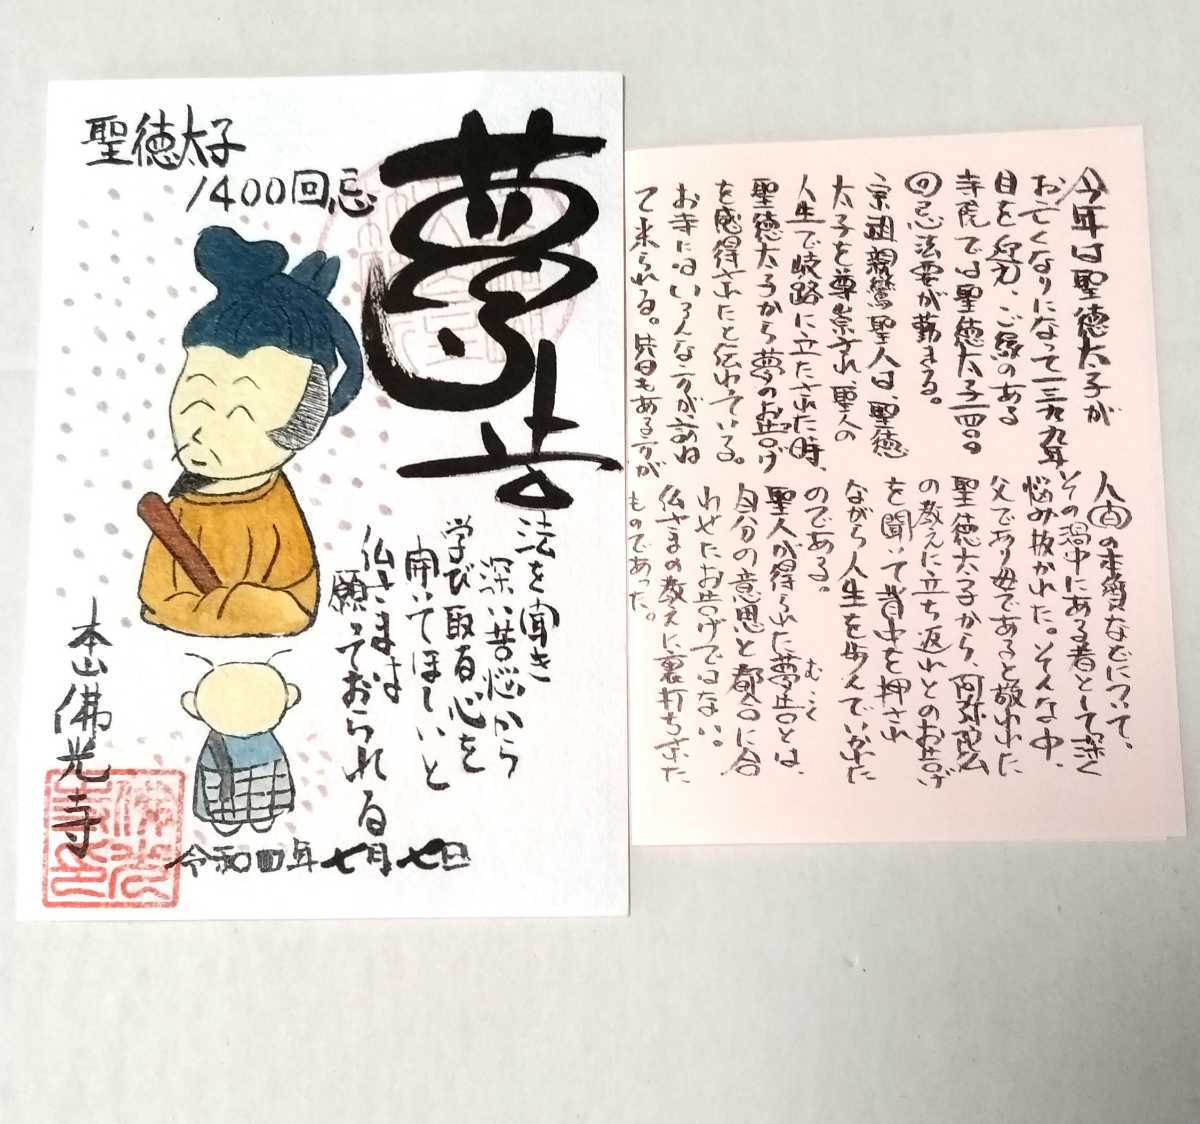 聖徳太子
1400回忌
夢告
法を聞き
深い苦悩から
学び取る心を
開いてほしいと
仏さまは
願っておられる
本山佛光寺
令和四年七月七日
今年は聖徳太子が
お亡くなりになって一三九九年
目を迎え、ご縁のある
寺院では聖徳太子一四〇〇
回忌法要が勤まる。
宗祖親鸞聖人は、聖徳
太子を尊崇され、聖人の
人生で岐路に立たされた時、
聖徳太子から夢のお告げ
を感得されたと伝わっている。
お寺にはいろんな方が訪ね
て来られる。先日もある方が
人間の本質などについて、
その渦中にある者として深く
悩み抜かれた。そんな中、
父であり母であると敬われた
聖徳太子から、阿弥陀仏
の教えに立ち返れとのお告げ
を聞いて背中を押され
ながら人生を歩んでいかれた
のである。
聖人が得られた夢告とは、
むこく
自分の意思と都合に合
わせたお告げではない。
仏さまの教えに裏打ちされた
ものであった。